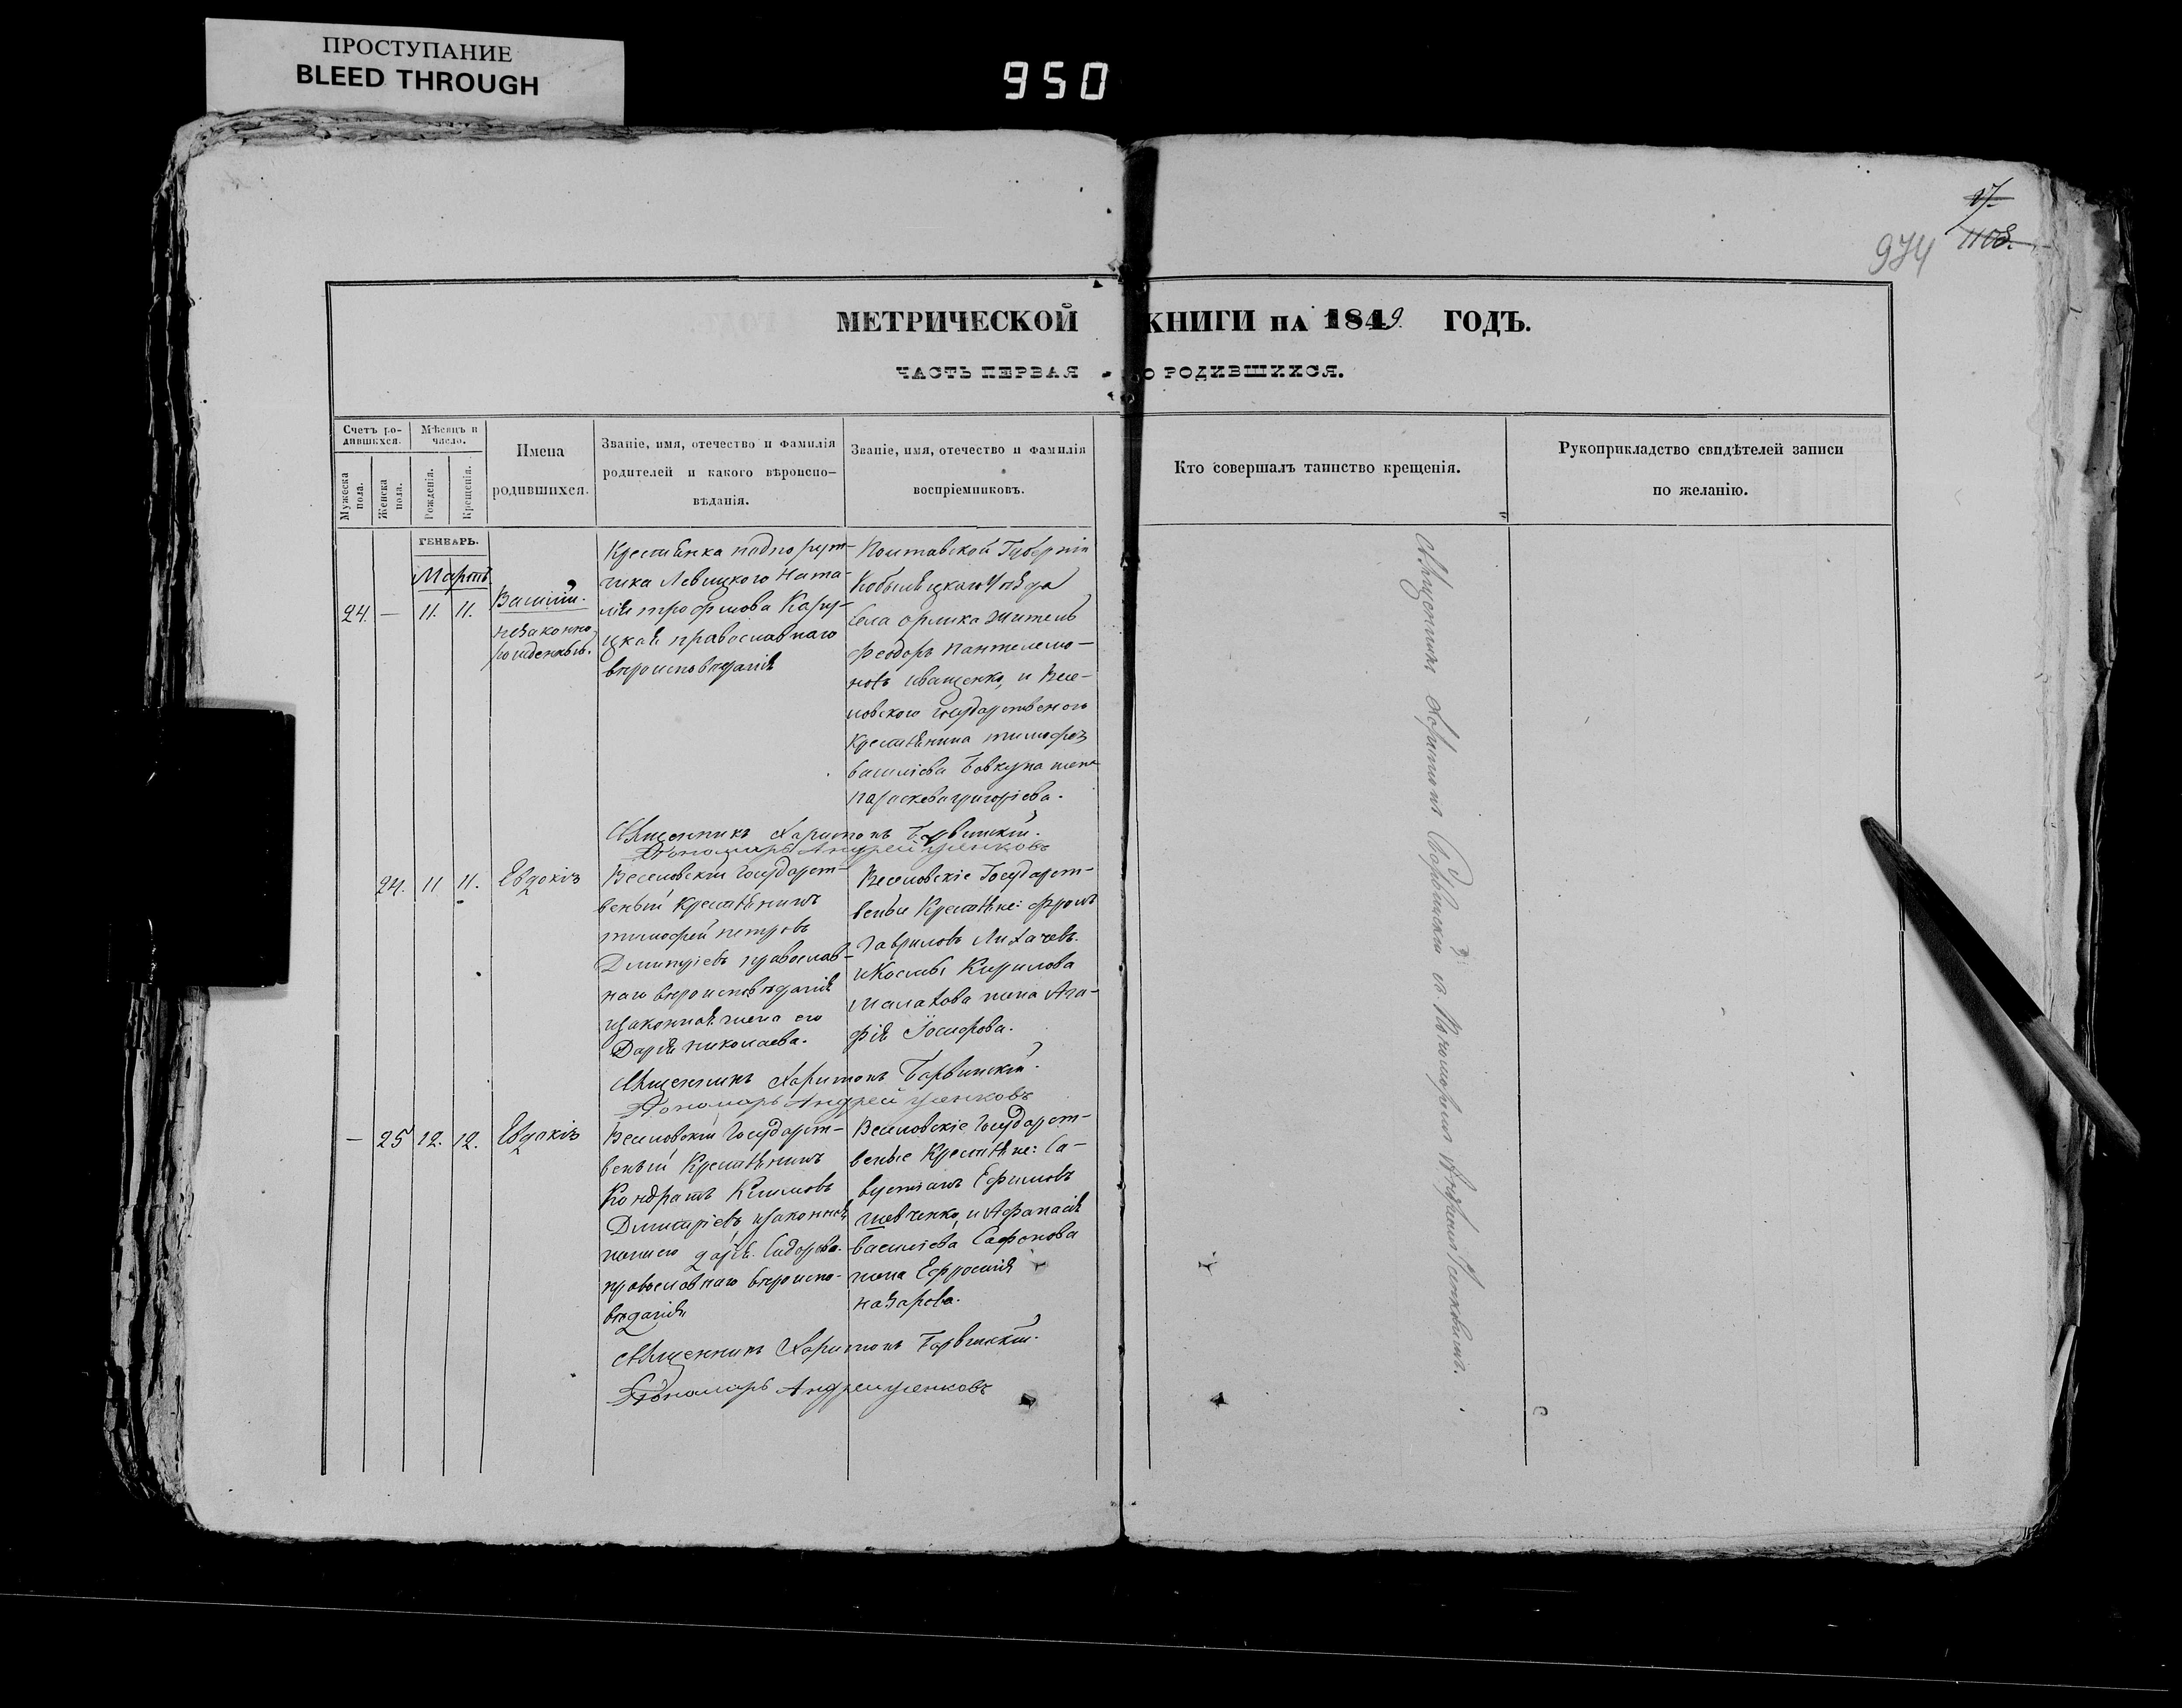 ПРОСТУПАНИЕ
BLEED THROUGH
950
27.
1108.
974
МЕТРИЧЕСКОЙ КНИГИ НА 1849. ГОДЪ.
ЧАСТЬ ПЕРВАЯ О РОДИВШИХСЯ.
Счетъ ро-
дившихся.
Мужеска пола.
Женска пола.
Мѣсяцъ и
число.
Рожденія.
Крещенія.
Имена
родившихся.
Званіе, имя, отечество и фамилія
родителей и какого вѣроиспо-
вѣданія.
Званіе, имя, отечество и фамилія
воспріемниковъ.
Кто совершалъ таинство крещенія.
Рукоприкладство свидѣтелей записи
по желанію.
ГЕНВАРЬ.
Мартъ
24. — 11. 11.
Василій.
незаконно
рожденный.
Крестьянка подпорут-
чика Левицкого Ната-
лія трофимова
православнаго
вероисповеданія
Полтавской Губерніи
Кобыляцкаго Уѣзда
села орлика житель
феодоръ пантелеимо-
новъ иващенко, и Весе-
ловского государственого
Крестьянина тимофея
василіева Бовкуна жена
параскева григоріева.
Священникъ Харитонъ Барвинскій.
Пономарь Андрей ценковъ
24. 11 11.
Евдокія
Веселовскій Государст-
веный Крестьянинъ
тимофей петровъ
Дмитріевъ православ-
наго вероисповеданія
изаконная жена его
Дарія николаева.
Веселовскіе Государст-
веные Крестьяне: фролъ
Гавриловъ Лихачевъ.
Кирилова
малахова жена Ага-
фія Іосифова.
Священникъ Харитонъ Барвинскій.
Пономарь Андрей ценковъ
— 25 12. 12.
Евдокія
Веселовскій Государст-
веный Крестьянинъ
Кондратъ Климовъ
Дмитріевъ изаконная
жена его дарія Сидорова.
православнаго вероиспо-
веданія
Веселовскіе Государст-
веные Крестьяне: Са-
вустіанъ Ефимовъ
шевченко, и Афанасія
василіева Сафонова
жена Ефросинія
назарова.
Священникъ Харитонъ Барвинскій.
Пономарь Андрей ценковъ
Священникъ Харитонъ Барвинскій съ Пономаремъ Андреемъ